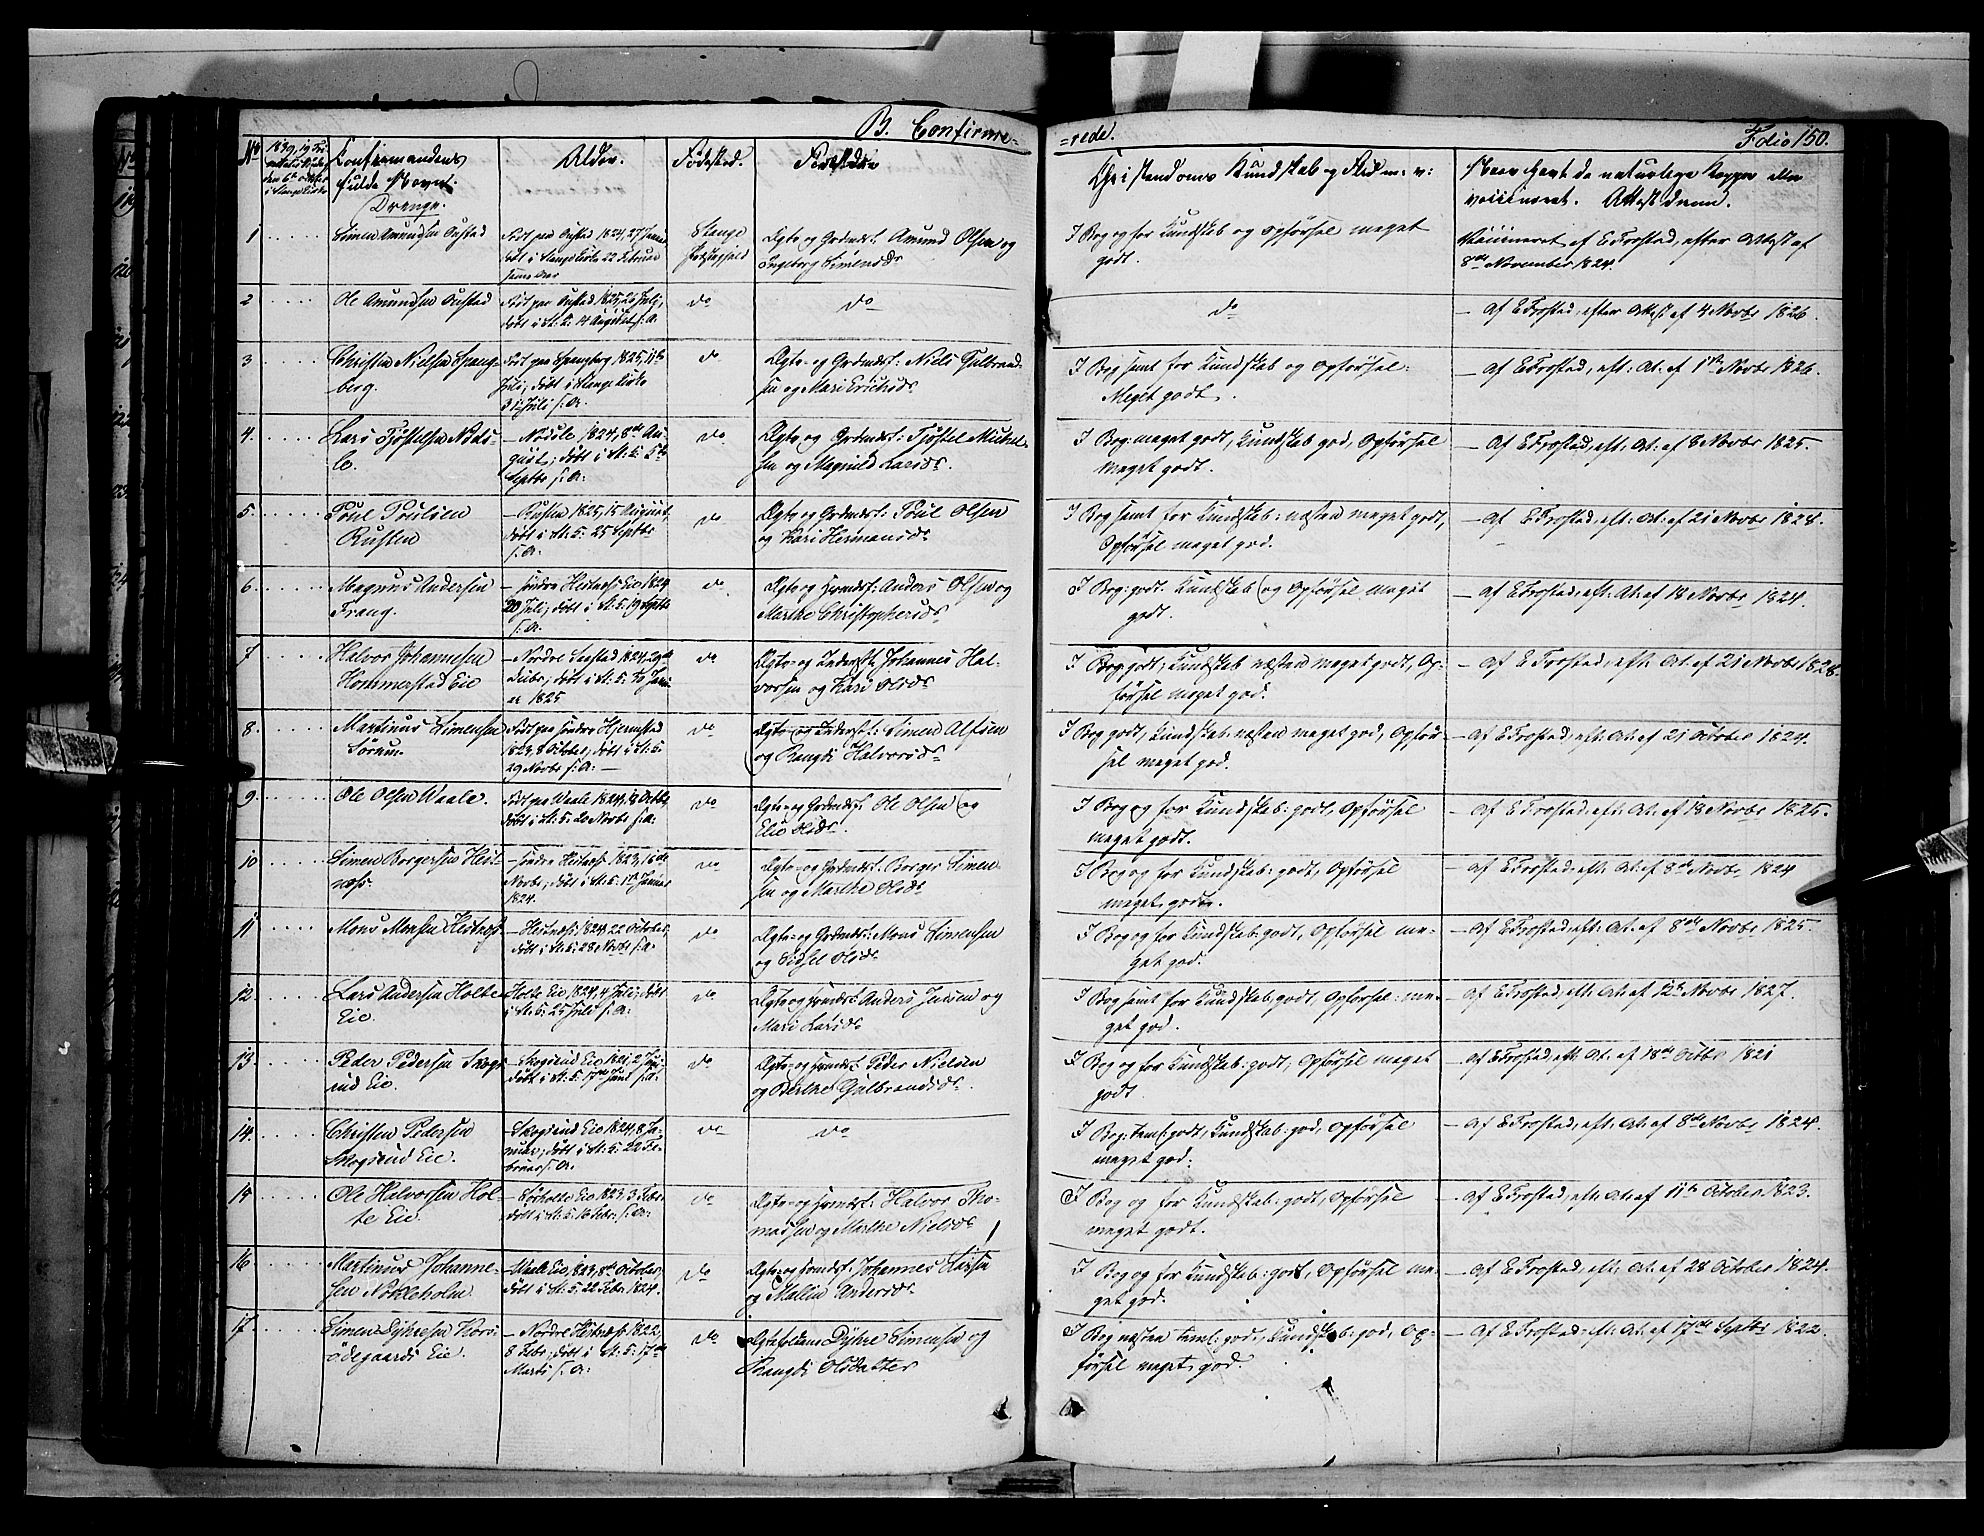 B. Confirme-
=rede.
Folio 150.
No
1839, 19 
den 6te October
i Stange Kirke
Konfirmandens
fulde Navn.
Drenge.
Alder.
Fødested.
Forældre
Christendoms Kundskab og Flid m: v:
Have havt de naturlige Kopper eller
vaccineret. Attest derom.
1
Simen Amundsen Oustad
Født paa Oustad 1824, 27 Janu
døbt i Stange Kirke 22 Februar
samme Aar
Stange
Præstegjeld
Ægte- og Grdmdsf: Amund Olsen og
Ingeborg Simensdr
I Bog og for Kundskab og Opførsel meget
godt.
Vaccineret af E Frostad, efter Attest af
8de November 1824.
2
Ole Amundsen Oustad
Født paa Oustad 1825, 26 Juli,
døbt i St: K: 14 August s: A.
do
do
do
— af E Frostad, efter Attest af 4 Novbr 1826.
3
Christen Nielsen Spang-
berg.
Født paa Spangberg 1825, 11te
Juli, døbt i Stange Kirke
31 Juli s: A.
do
Ægte- og Grdmdsf: Niels Gulbrand-
sen og Mari Erichsdr
I Bog samt for Kundskab og Opførsel:
Meget godt.
— af E Frostad, eft: At: af 1ste Novbr 1826.
4.
Lars Tjøstelsen Nøds-
le.
— Nødsle 1824, 8de Au-
gust, døbt i St: K: 5te
Septbr s: A:
do
Ægte og Grdmdsf: Tjøstel Michel-
sen og Magnild Larsdr.
I Bog: meget godt, Kundskab god, Opførsel
meget godt.
— af E Frostad, eft: At: af 8 Novbr 1825.
5.
Poul Poulsen
Rusten
— Rusten 1825, 15 August,
døbt i St: K: 25 Septbr
s: A.
do
Ægte- og Grdmdsf: Poul Olsen
og Kari Hermansdr
I Bog samt for Kundskab: næsten meget godt,
Opførsel meget god.
— af E Frostad, eft: At: af 21 Novbr 1828.
6.
Magnus Andersen
Frang.
— søndre Hestnæs Eie 1824
29 Juli, døbt i St: K: 19 Septbr
s: A.
do
Ægte og Huusmdsf: Anders Olsen og
Marthe Christophersdr
I Bog: godt. Kundskab og Opførsel meget
godt.
— af E Frostad, eft: At: af 18 Novbr 1824.
7
Halvor Johannesen
Hommerstad Eie
— Nordre Saastad 1824, 29de
Decbr, døbt i St: K: 30 Janu-
ar 1825
do
Ægte- og Inderstsf: Johannes Hal-
vorsen og Kari Olsdr
I Bog: godt, Kundskab næsten meget godt, Op-
førsel meget god.
— af E Frostad, eft: At: af 21 Novbr 1828.
8.
Martinus Simensen
Sørum.
Født paa søndre Hjermstad
1823, 8 Octobr, døbt i St: K:
29 Novbr s: A: —
do
Ægte og Inderstf: Simen Alfsen
og Rangdi Halvorsdr
I Bog godt, Kundskab næsten meget god, Opfør-
sel meget god.
— af E Frostad, eft: At: af 21 October 1824.
9.
Ole Olsen Waale.
Født paa Waale 1824, 18 Octbr,
døbt i St: K: 20 Novbr s: A:
do
Ægte- og Grdmdsf: Ole Olsen og
Elie Olsdr.
I Bog og for Kundskab: godt, Opførsel
meget godt.
— af E Frostad, eft: At: af 18 Novbr 1825.
10
Simen Borgersen Hest-
næs.
— søndre Hestnæs 1823, 16de
Novbr, døbt i St: K: 1ste Januar
1824.
do
Ægte- og Grdmdsf: Borger Simen-
sen og Marthe Olsdr
I Bog og for Kundskab: godt, Opførsel
meget god.
— af E Frostad, eft: At: af 8de Novbr 1824
11
Mons Monsen Hestnæs
— Hestnæs 1824, 22 October,
døbt i St: K: 28 Novbr s: A:
do
Ægte- og Grdmdsf: Mons Simensen
og Sidsel Olsdr
I Bog og for Kundskab: godt, Opførsel me-
get god.
— af E Frostad, eft: At: af 8de Novbr 1825.
12.
Lars Andersen Holte
Eie.
Holte Eie 1824, 4 Juli, døbt
i St: K: 25 Juli s: A:
do
Ægte og Huusmdsf: Anders Jensen og
Mari Larsdr
I Bog samt for Kundskab: godt, Opførsel: me-
get god.
— af E Frostad, eft: At: af 12te Novbr 1827.
13.
Peder Pedersen Skogs-
rud Eie.
— Skogsrud Eie 1821, 2 Ju-
døbt i St: K: 17de Juni s: A:
do
Ægte- og Huusmdsf: Peder Nielsen
og Berthe Gulbrandsdr.
I Bog og for Kundskab: godt, Opførsel meget
godt
— af E Frostad, eft: At: af 18de Octbr 1821
14.
Christen Pedersen
Skogsrud Eie.
— Skogsrud Eie 1824, 8 Ja-
nuar, døbt i St: K: 22 Fe-
bruar s: A.
do
do
I Bog: teml: godt, Kundskab: god, Opførsel
meget god.
— af E Frostad, eft: At: af 8de Novbr 1824.
15
Ole Halvorsen Hol-
te Eie.
— Sørholte Eie 1823, 3 Febr.
døbt i St: K: 16 Febr. s: A:
do
Ægte- og Huusmdsf: Halvor Tho-
masen og Marthe Nielsdr
I Bog og for Kundskab: godt, Opførsel
meget godt.
— af E Frostad, eft: At: af 11te October 1823.
16
Martinus Johanne-
sen Nokleholm
— Waale Eie, 1823, 8de October,
døbt i St: K: 22 Febr. 1824.
do
Ægte- og Huusmdsf: Johannes Larsen
og Malene Andersdr.
I Bog og for Kundskab: godt, Opførsel me-
get god.
— af E Frostad, eft: At: af 28 October 1824.
17.
Simen Dyhresen Kors-
ødegaards Eie.
— Nordre Hestnæs 1822,
8 Febr., døbt i St: K: 17de
Marts s: A:
do
Ægtefolkene Dyhre Simensen og
Rangdi Olsdatter
I Bog næsten teml: godt, Kundskab: god, Op-
førsel meget god.
— af E Frostad, eft: At: af 17de Septbr 1822.